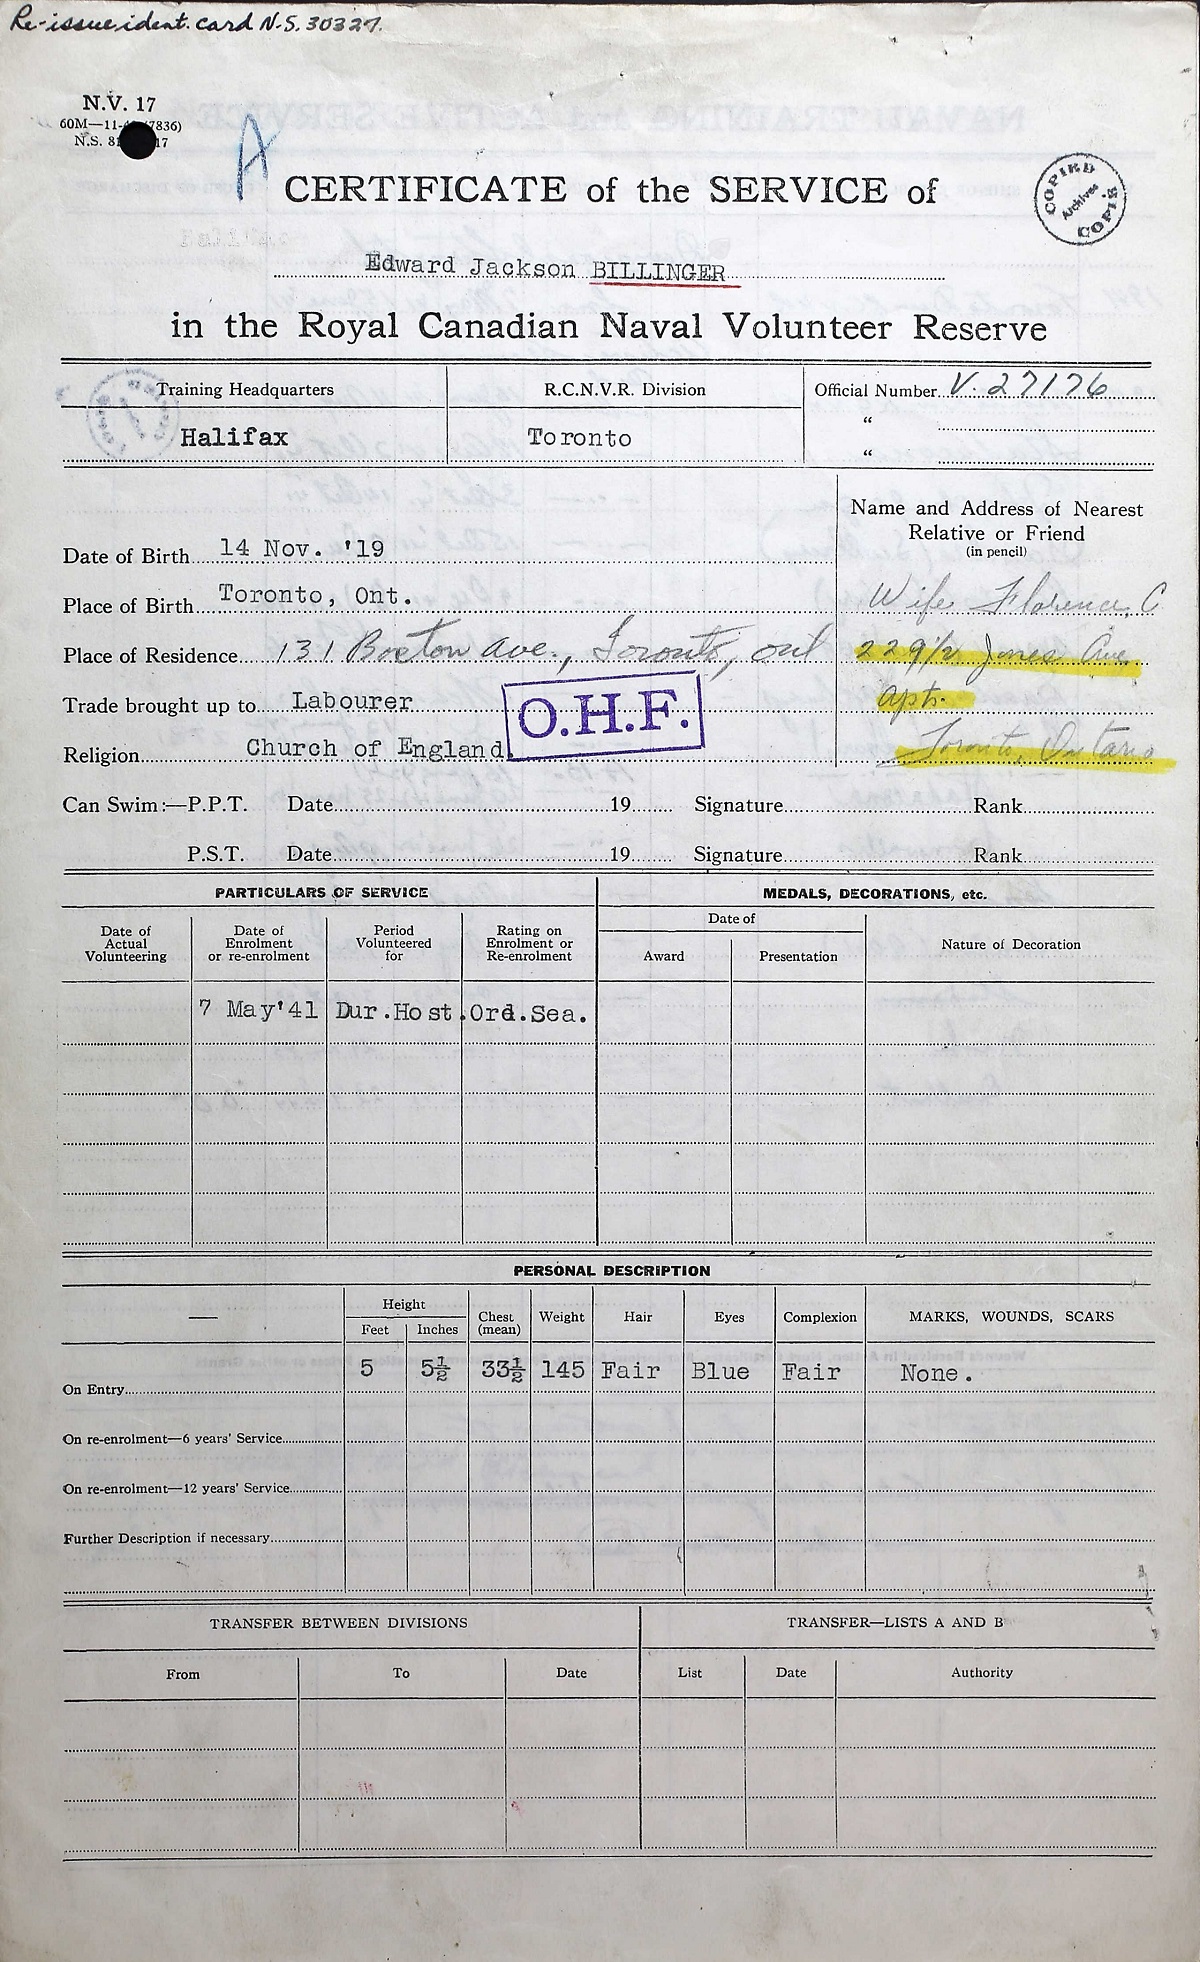 Re-issue ident. card N.S. 30327.
N.V. 17
60M—11- (7836)
N.S. 81 17
A
CERTIFICATE of the SERVICE of
COPIED Archives COPIÉ
Edward Jackson BILLINGER
in the Royal Canadian Naval Volunteer Reserve
Training Headquarters R.C.N.V.R. Division Official Number V. 27176
Halifax Toronto “
“
Name and Address of Nearest
Relative or Friend
(in pencil)
Date of Birth 14 Nov. '19
Place of Birth Toronto, Ont. Wife Florence, C
Place of Residence 131 Boston Ave., Toronto, Ont 229½ Jones Ave,
Trade brought up to Labourer apts.
O.H.F.
Religion Church of England. Toronto, Ontario
Can Swim:—P.P.T. Date 19 Signature Rank
P.S.T. Date 19 Signature Rank
PARTICULARS OF SERVICE MEDALS, DECORATIONS, etc.
Date of Actual Volunteering Date of Enrolment or re-enrolment Period Volunteered for Rating on Enrolment or Re-enrolment Date of Nature of Decoration
Award Presentation
7 May'41 Dur.Host. Ord.Sea.
PERSONAL DESCRIPTION
— Height Chest (mean) Weight Hair Eyes Complexion MARKS, WOUNDS, SCARS
Feet Inches
On Entry 5 5½ 33½ 145 Fair Blue Fair None.
On re-enrolment—6 years' Service
On re-enrolment—12 years' Service
Further Description if necessary
TRANSFER BETWEEN DIVISIONS TRANSFER—LISTS A AND B
From To Date List Date Authority